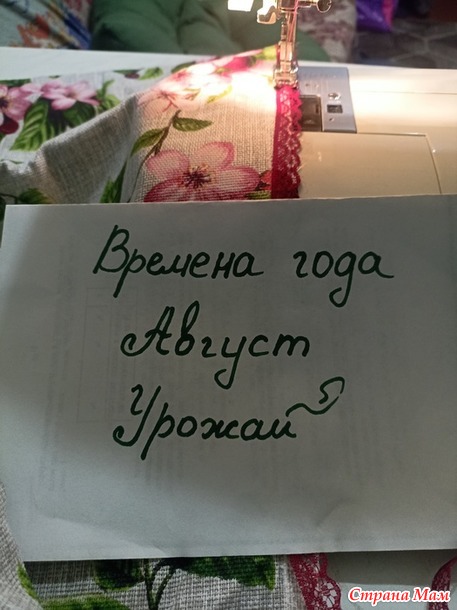 Времена года
Август
Урожай
Страна Мам